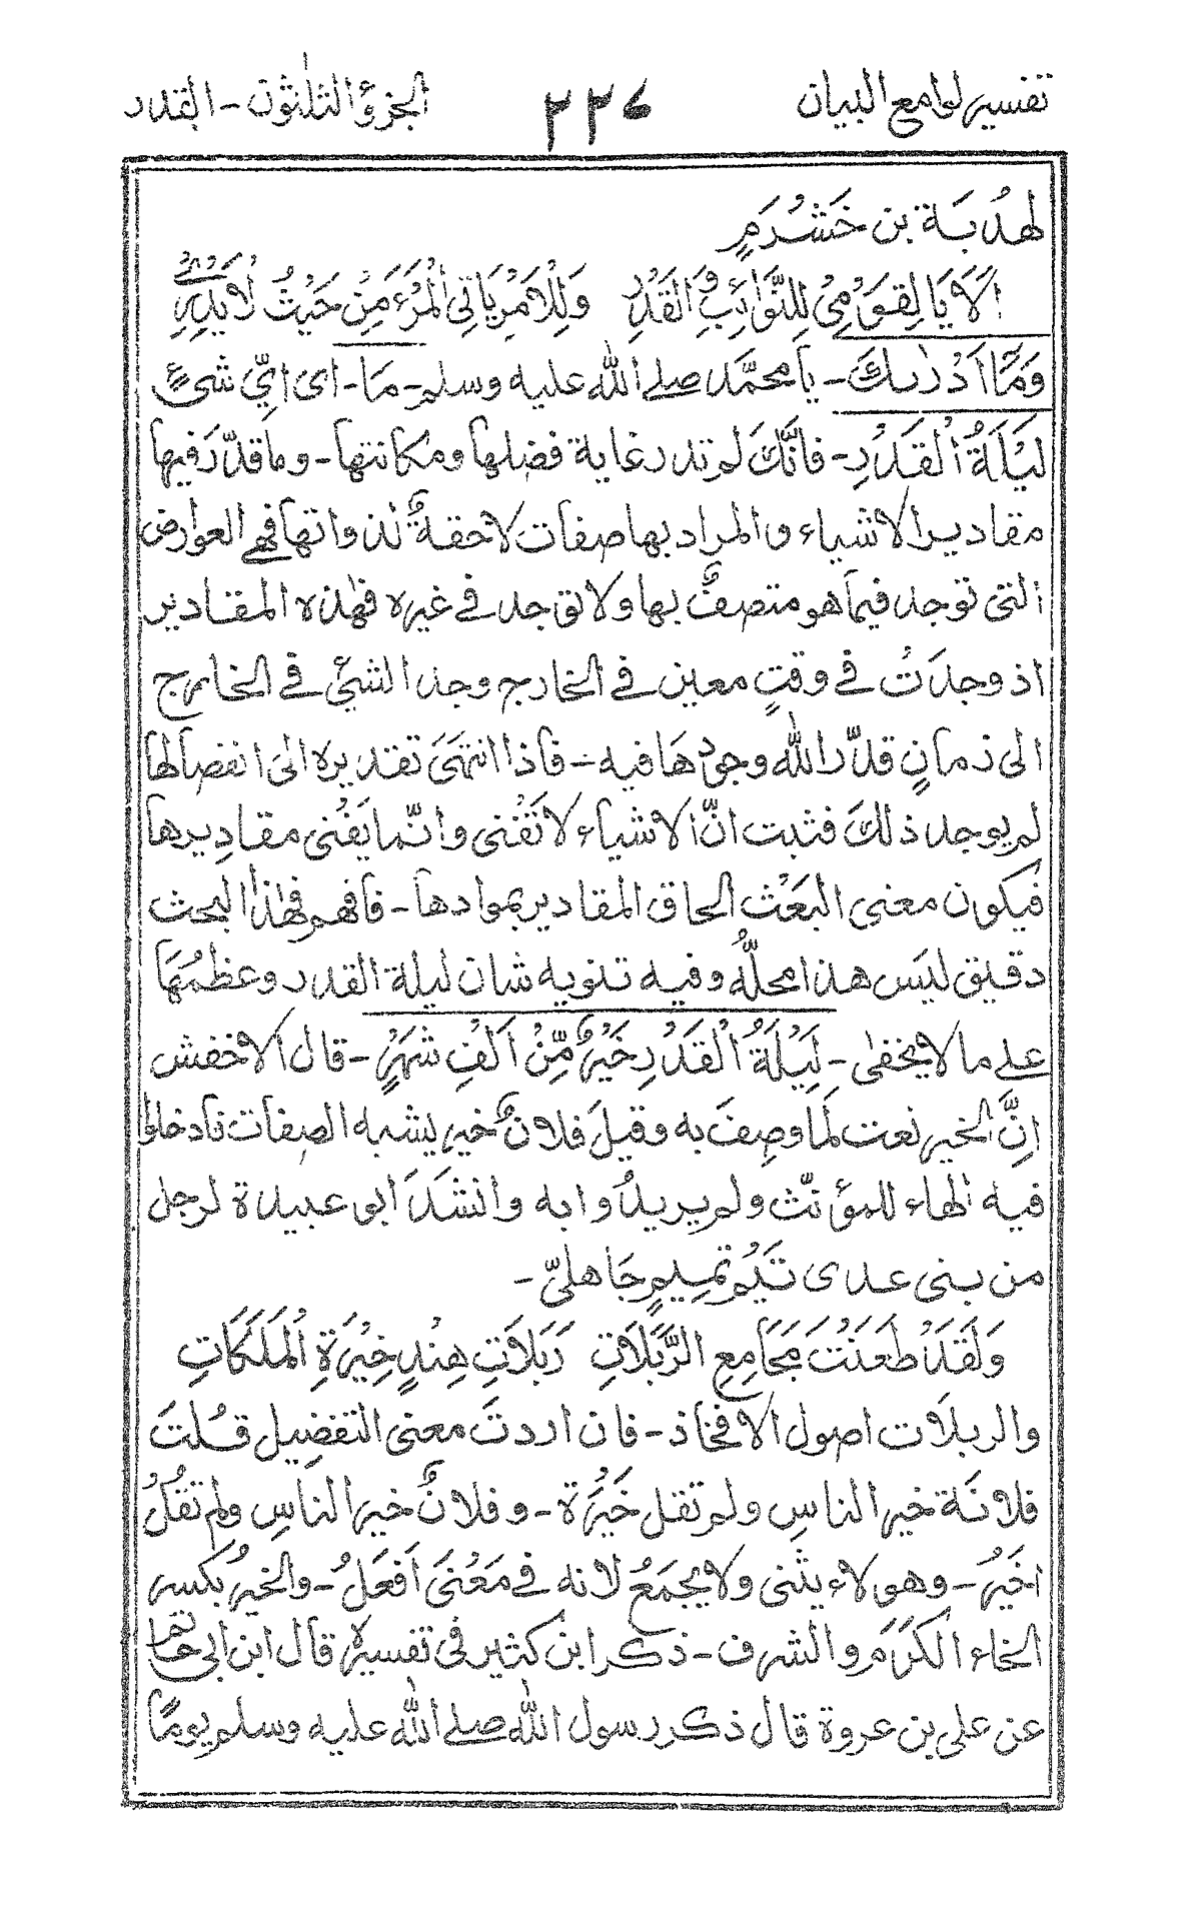 تفسير لوامع البيان ٢٢٦ الجزؤ الثلٰثون - القدر
لهدُبَة بن خَشْرَمٍ
اَلَا يَا لِقَوْمِيْ لِلنَّوَائِبِ وَالْقَدْرِ وَلِلْاَمْرِ يَاتِى الْمَرْءَ مِنْ حَيْثُ لَا يَدْرِيْ
وَمَآ اَدْرٰىكَ - يا محمَّد صلے الله عليه وسلم - مَا - اى ايّ شئٍ
لَيْلَةُ الْقَدْرِ - فانَّكَ لم تدر غاية فضلها ومكانتها - وما قدّرَ فيها
مقادير الاشياء والمراد بها صفات لاحقةٌ لذواتها فهى العوارض
التى توجد فيما هو متصفٌ بها ولا توجد فے غيره فهٰذه المقادير
اذ وجدَتْ فے وقتٍ معين فے الخارج وجد الشئ فے الخارج
الى زمانٍ قدَّر الله وجودهَا فيه - فاذا انتهَىَ تقديره الىٰ انفصالها
لم يوجد ذلكَ فثبت انّ الاشياء لا تَفْنى وانّما يَفْنى مقادِيرها
فيكون معنى البَعْث الحاق المقادير بموادها - فافهم فهٰذا البحث
دقيق ليَس هذا محلُّه وفيه تنويه شان ليلة القدر وعظمُهَا
علے ما لا يخفىٰ - لَيْلَةُ الْقَدْرِ خَيْرٌ مِّنْ اَلْفِ شَهْرٍ - قال الاخفش
انَّ الخير نعت لما وصِفَ به وقيلَ فلانٌ خير يشبه الصفات فادخلوا
فيه الهاء للمؤنّث ولم يريدُوا به وانشَدَ ابو عبيدة لرجل
من بنى عدى تَيْم تمِيمٍ جَاهلىّ -
وَلَقَدْ طَعَنْتُ مَجَامِعَ الرَّبَلَاتِ رَبَلَاتِ هِنْدٍ خَيْرَةِ الْمَلَكَاتِ
والربلَات اصول الافخاذ - فان اردتَ معنى التفضِيل قُلتَ
فلانَة خير الناسِ ولم تقل خَيْرَة - وفلانٌ خير الناسِ ولم تقُلْ
اخَيْرُ - وهو لاء يثنى ولا يجمَعُ لانه فے مَعْنَى اَفعَلُ - والخيْرُ بكسر
الخاء الكَرَم والشرف - ذكر ابن كثير فى تفسيره قال ابن ابى حاتم
عن على بن عروة قال ذكر رسول الله صلے الله عليه وسلم يومًا